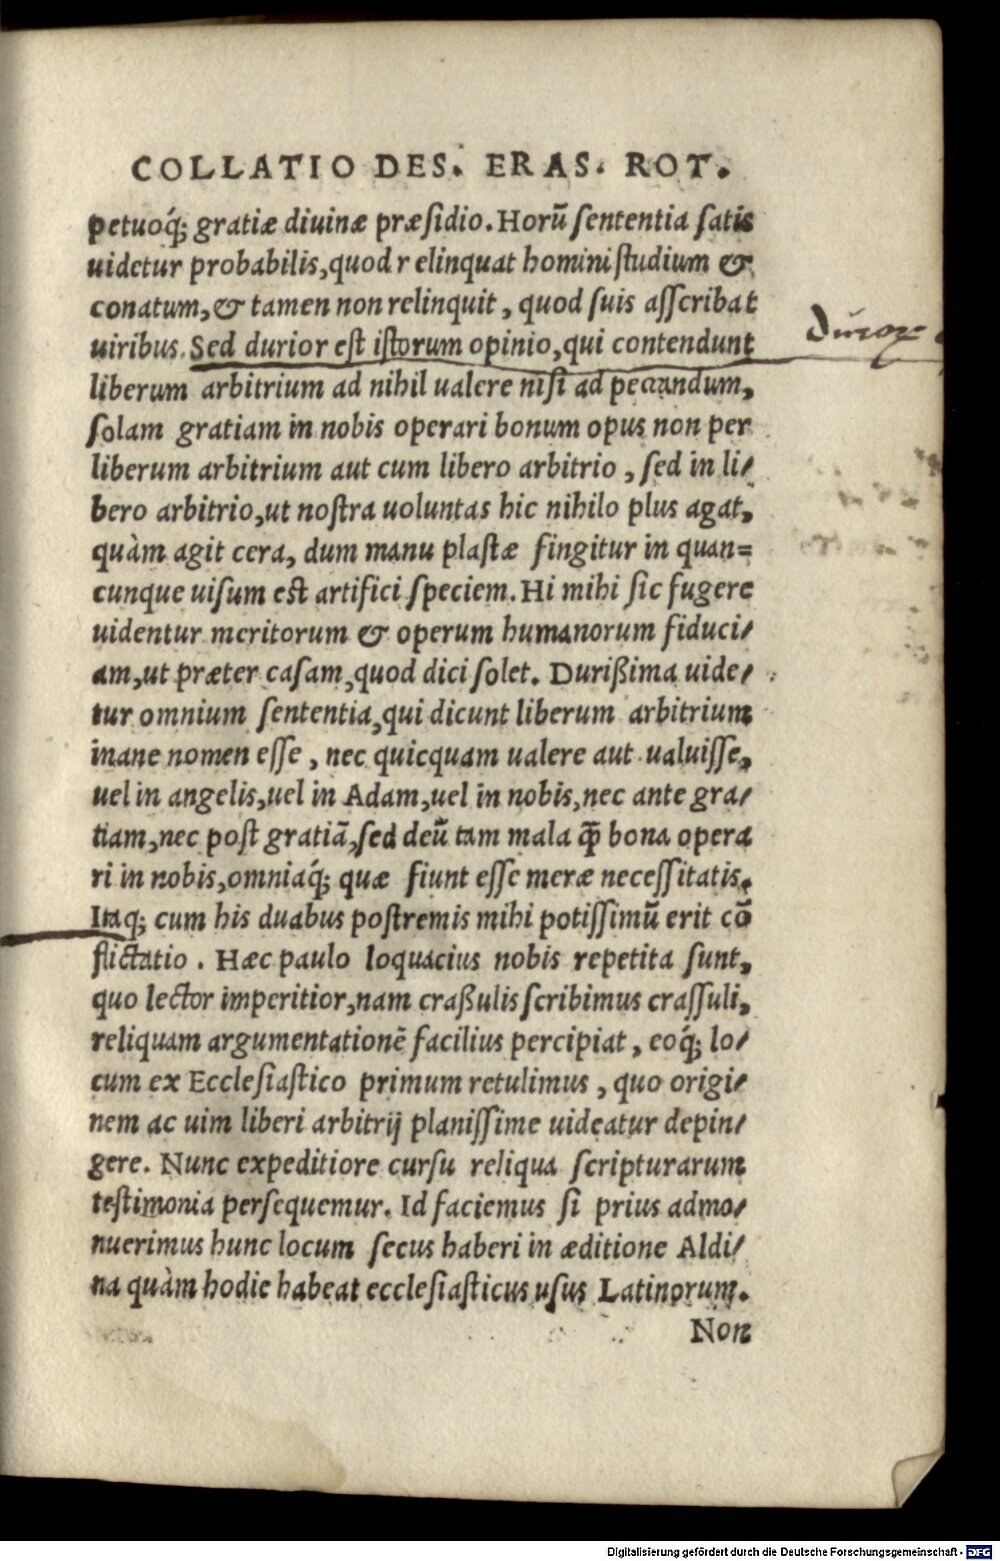 COLLATIO DES. ERAS. ROT.
petuoq́; gratiæ diuinæ præsidio. Horū sententia satis
uidetur probabilis, quod r elinquat homini studium &
conatum, & tamen non relinquit, quod suis asscribat
uiribus. Sed durior est istorum opinio, qui contendunt
liberum arbitrium ad nihil ualere nisi ad peccandum,
solam gratiam in nobis operari bonum opus non per
liberum arbitrium aut cum libero arbitrio, sed in li/
bero arbitrio, ut nostra uoluntas hic nihilo plus agat,
quàm agit cera, dum manu plastæ fingitur in quan=
cunque uisum est artifici speciem. Hi mihi sic fugere
uidentur meritorum & operum humanorum fiduci/
am, ut præter casam, quod dici solet. Durißima uide/
tur omnium sententia, qui dicunt liberum arbitrium
inane nomen esse, nec quicquam ualere aut ualuisse,
uel in angelis, uel in Adam, uel in nobis, nec ante gra/
tiam, nec post gratiā, sed deū tam mala q̄ bona opera
ri in nobis, omniaq́; quæ fiunt esse meræ necessitatis.
Itaq; cum his duabus postremis mihi potissimū erit cō
flictatio. Hæc paulo loquacius nobis repetita sunt,
quo lector imperitior, nam craßulis scribimus crassuli,
reliquam argumentationē facilius percipiat, eoq́; lo/
cum ex Ecclesiastico primum retulimus, quo origi/
nem ac uim liberi arbitrij planissime uideatur depin/
gere. Nunc expeditiore cursu reliqua scripturarum
testimonia persequemur. Id faciemus si prius admo/
nuerimus hunc locum secus haberi in æditione Aldi/
na quàm hodie habeat ecclesiasticus usus Latinorum.
Non
Digitalisierung gefördert durch die Deutsche Forschungsgemeinschaft - DFG